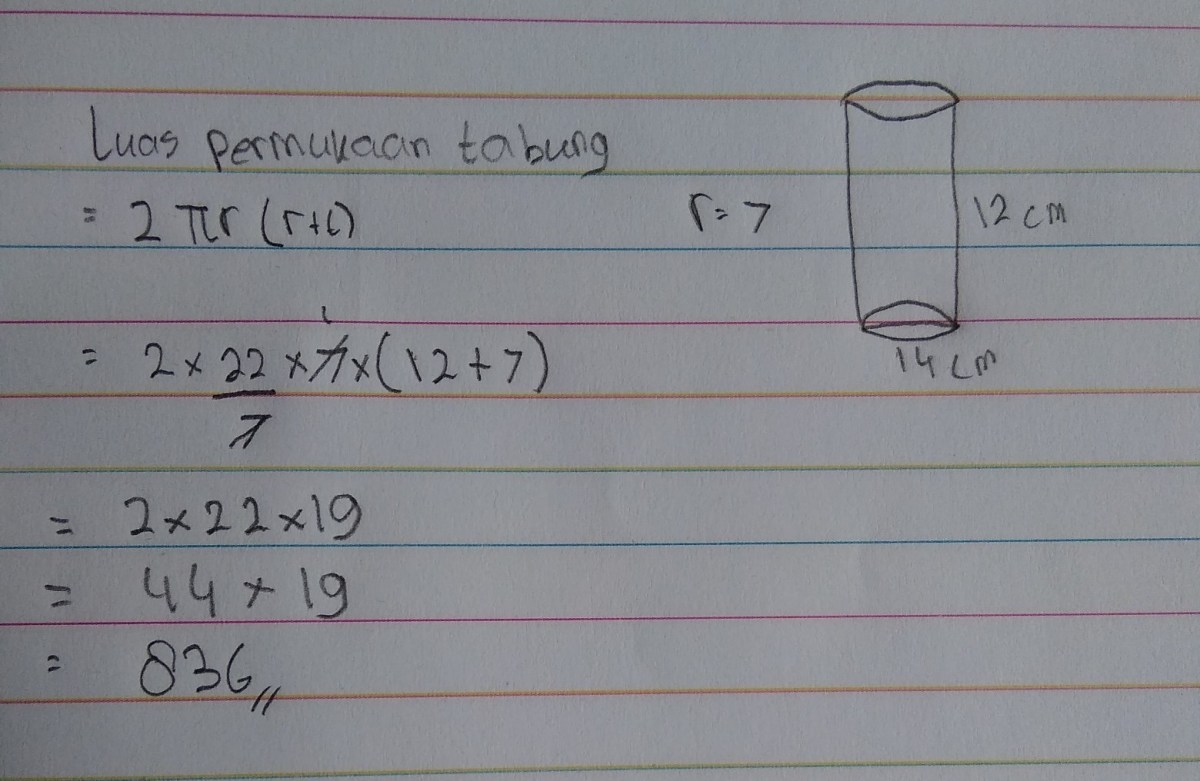 Luas permukaan tabung
= 2 πr (r+t)
r = 7
12 cm
14 cm
= 2 × 22/7 × 7 × (12 + 7)
1
= 2 × 22 × 19
= 44 × 19
= 836,,